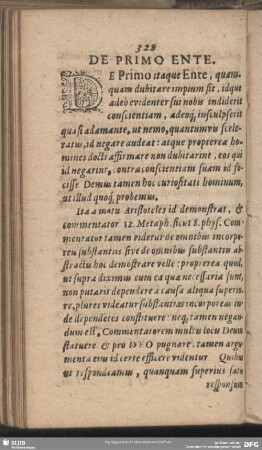 328
DE PRIMO ENTE.
DE Primo itaque Ente, quam-
quam dubitare impium sit, idque
adeò evidenter sui nobis indiderit
conscientiam, adeoq́, insculpserit
quasi adamante, ut nemo, quantumvis scele-
ratus, id negare audeat: atque propterea ho-
mines docti affirmare non dubitarint, eos qui
id negarint, contra conscientiam suam id fe-
cisse Demus tamen hoc curiositati hominum,
ut illud quoq́; probemus.
Ita a motu Aristoteles id demonstrat, &
commentator 12. Metaph. sicut 8. phys. Com-
mentator tamen videtur de omnibus incorpo-
reis substantiis sive de omnibus substantiis ab-
stractis hoc demonstrare velle: propterea quod,
ut supra diximus cum ea quæ necessaria sunt,
non putarit dependere a causa aliqua superio-
re, plures videatur substantias incorporeas in-
dependetes constituere: neq́; tamen negan-
dum est, Commentatorem multis locis Deum
statuere & pro DEO pugnare: tamen argu-
menta ejus id certe efficere videntur Quibus
ut respondeamus, quanquam superius satis
responsum
SLUB